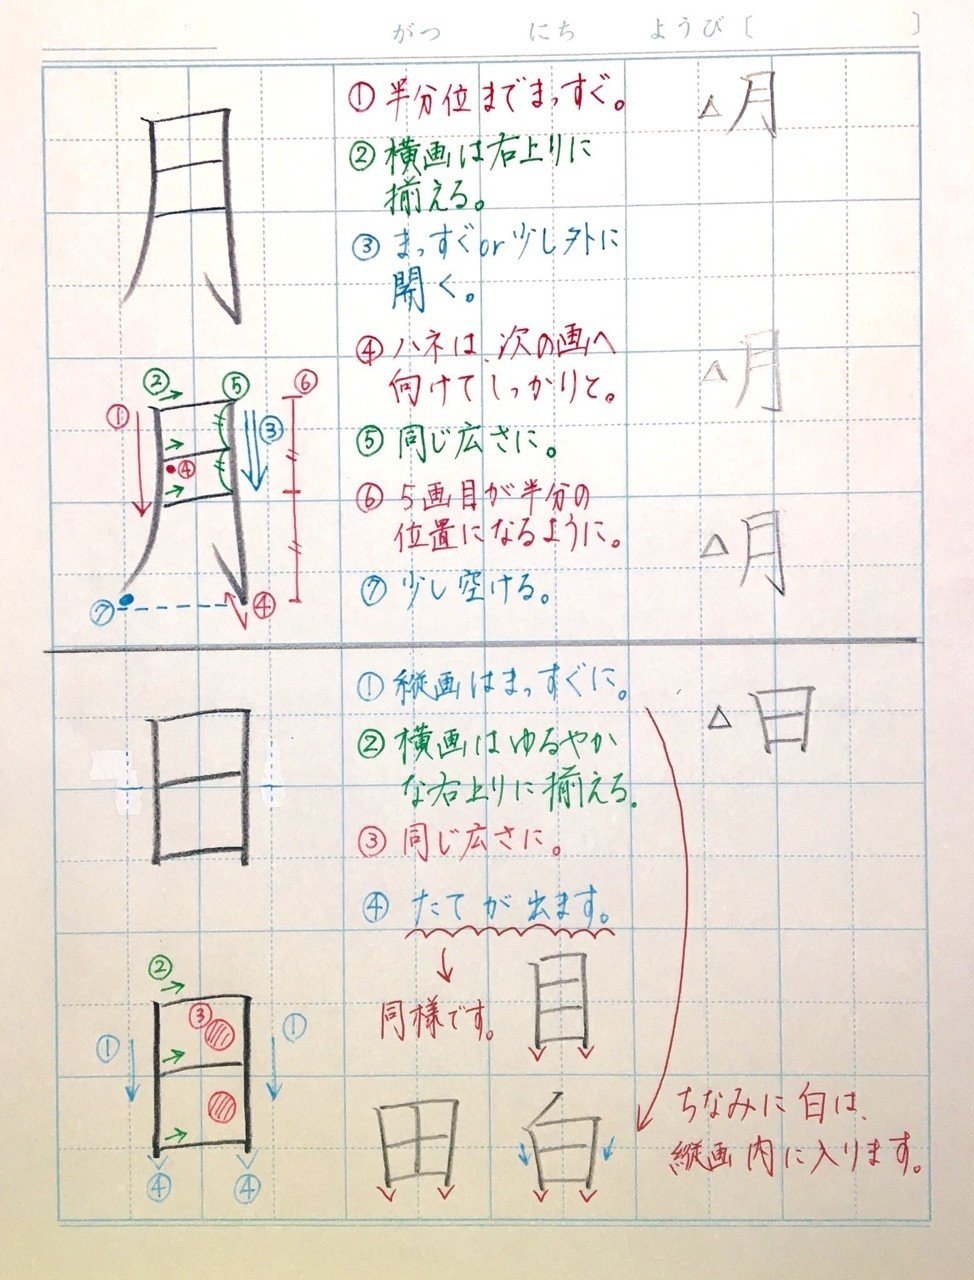 がつ にち ようび[ ]
月
① 半分位までまっすぐ。
② 横画は右上りに
揃える。
③ まっすぐor少し外に
開く。
④ ハネは、次の画へ
向けてしっかりと。
⑤ 同じ広さに。
⑥ 5画目が半分の
位置になるように。
⑦ 少し空ける。
△月
△月
△月
② ⑤ ⑥
① ③
月
④
⑦ ④
日
① 縦画はまっすぐに。
② 横画はゆるやか
な右上りに揃える。
③ 同じ広さに。
④ たてが出ます。
△日
同様です。
目
② 
① ③ ①
日
④ ④
田 白
ちなみに白は、
縦画内に入ります。